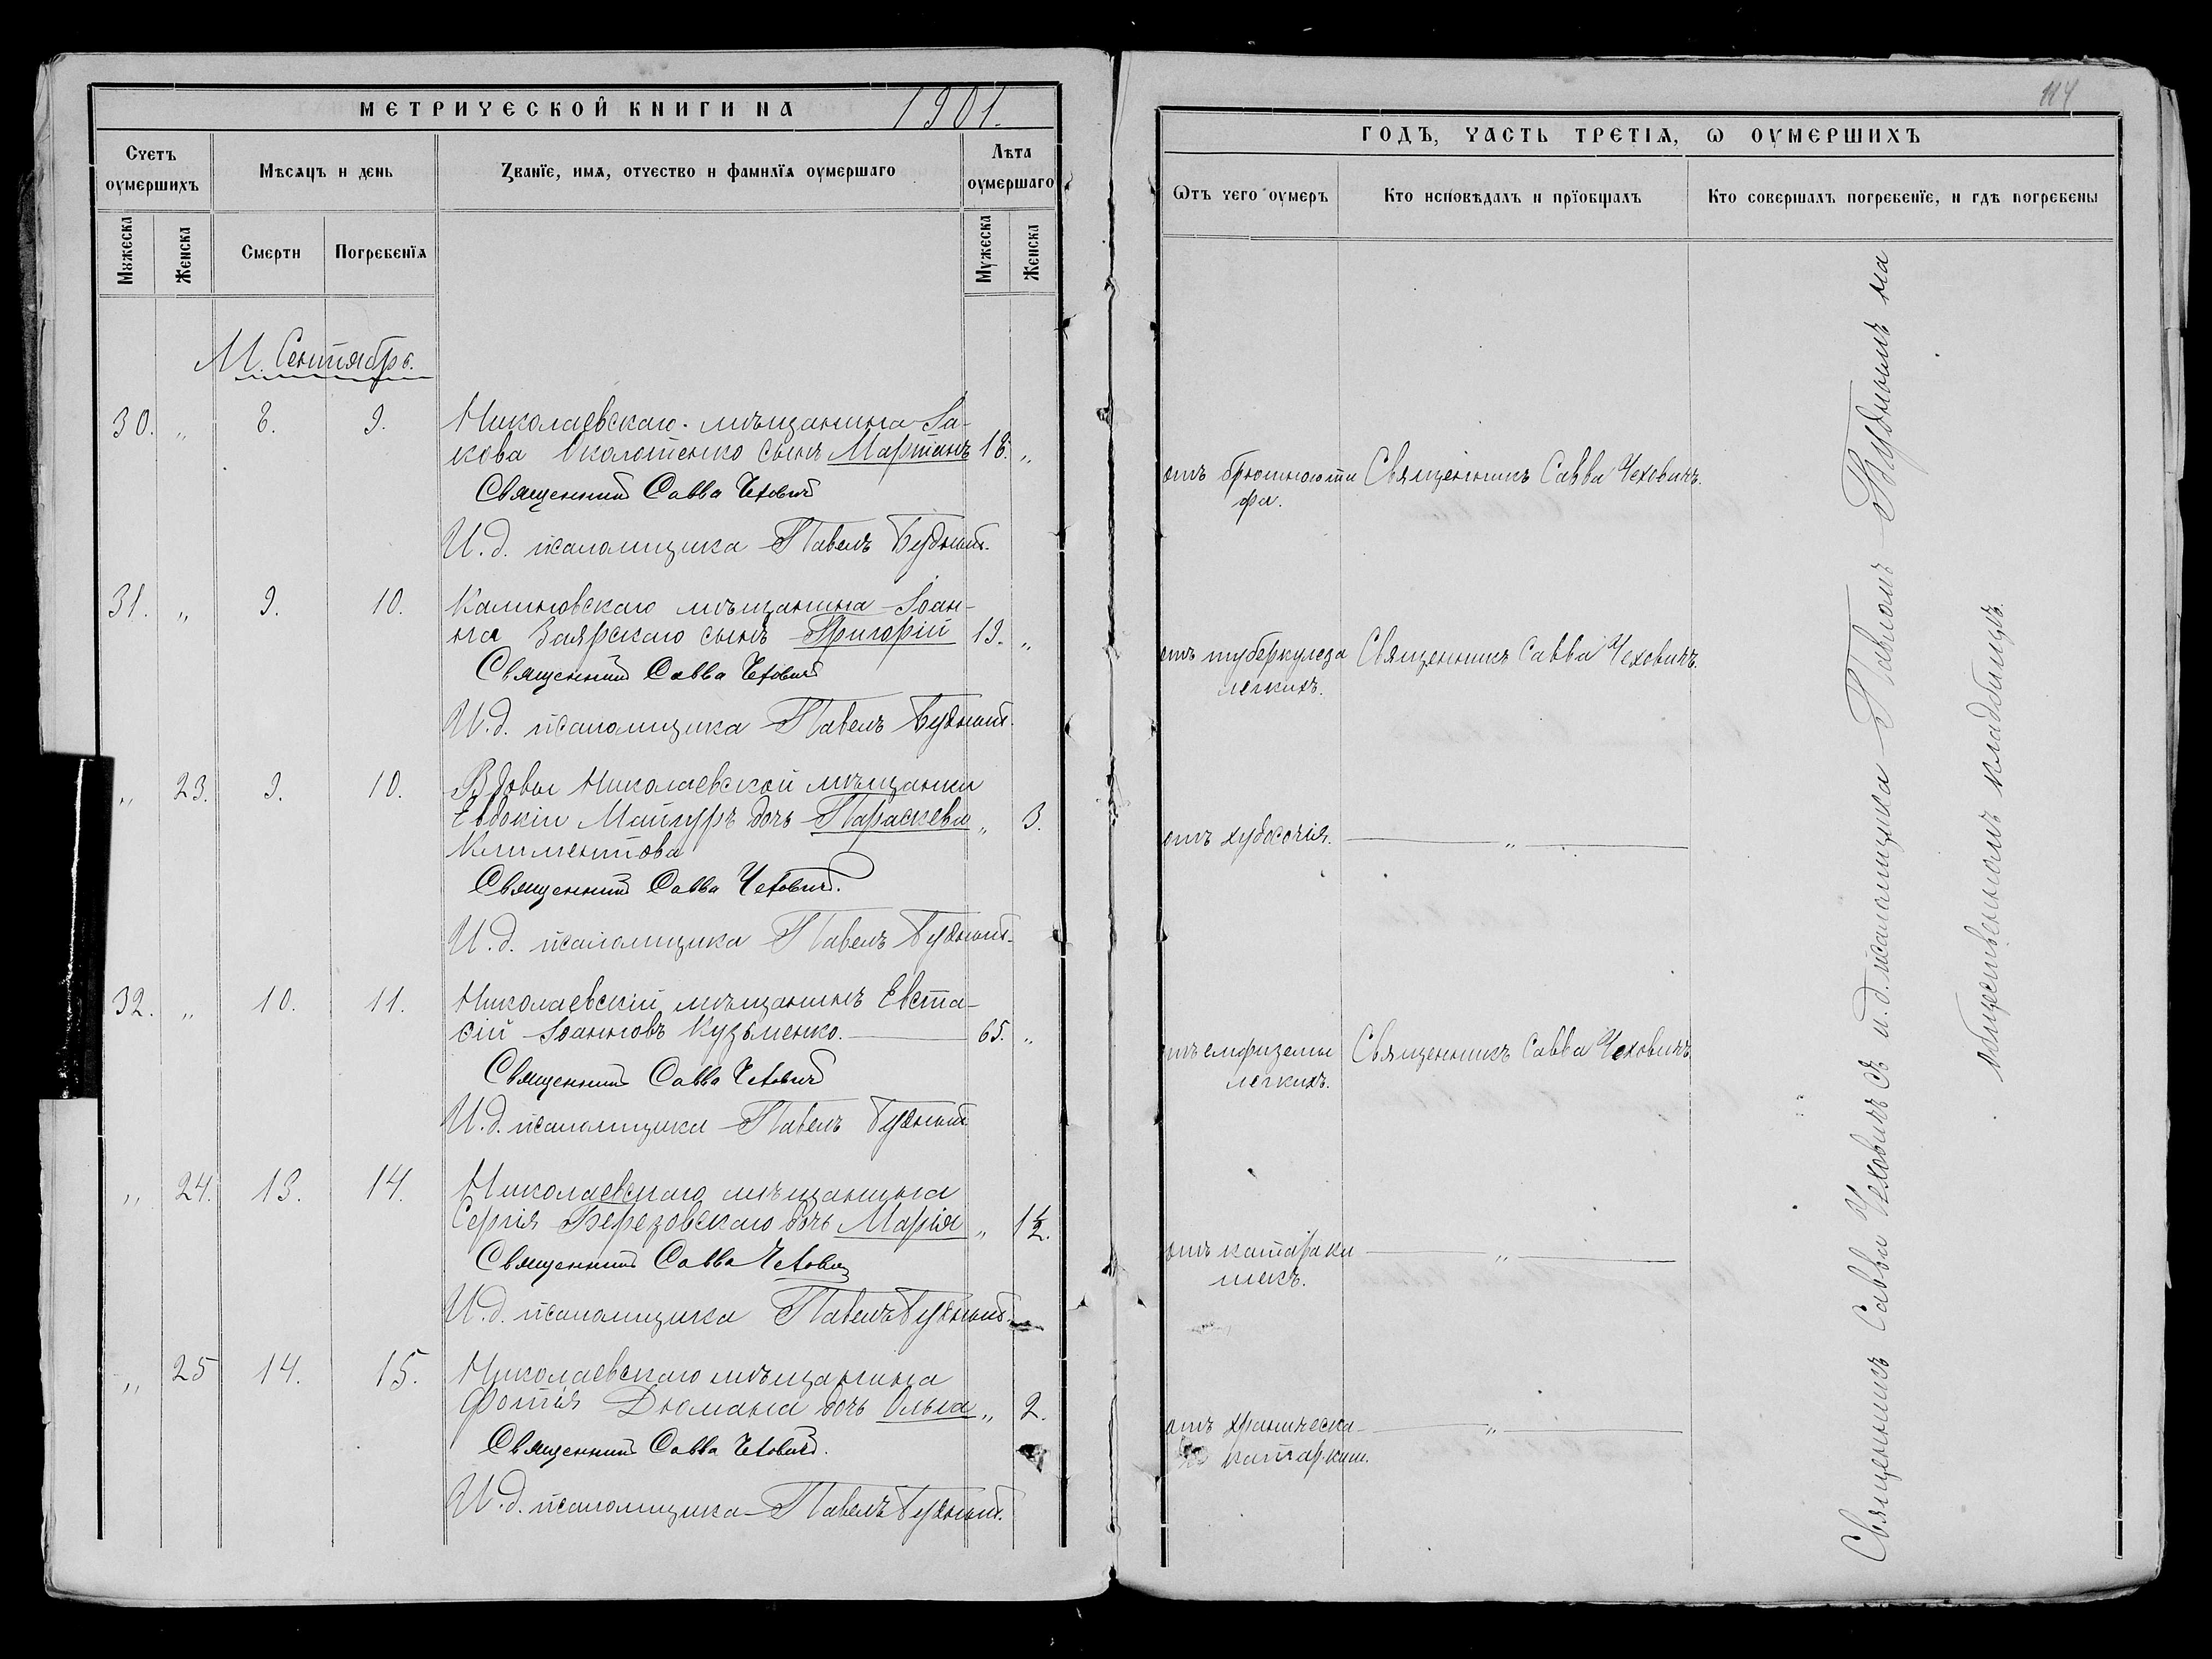 МЕТРИЧЕСКОЙ КНИГИ НА 1901.
Счетъ оумершихъ
Мѣсяцъ и день
Званіе, имя, отчество и фамилія оумершаго
Лѣта оумершаго
Мужеска
Женска
Смерти
Погребенія
Мужеска
Женска
М. Сентябрь.
30. „ 8. 9. Николаевскаго мѣщанина Іа-
кова Околотенко сынъ Мартинъ 18. „
Священникъ Савва Чеховичъ
И. д. псаломщика Павелъ Будный.
31. „ 9. 10. Калиновскаго мѣщанина Іоан-
на Заярскаго сынъ Григорій 19. „
Священникъ Савва Чеховичъ
И. д. псаломщика Павелъ Будный.
„ 23. 9. 10. Вдовы Николаевской мѣщанки
Евдокіи дочь Параскева „ 3.
Климентова
Священникъ Савва Чеховичъ.
И. д. псаломщика Павелъ Будный.
32. „ 10. 11. Николаевскій мѣщанинъ Евста-
сій Іоанновъ Кузьменко. 65. „
Священникъ Савва Чеховичъ
И. д. псаломщика Павелъ Будный
„ 24. 13. 14. Николаевскаго мѣщанина
Сергія Березовскаго дочь Марія „ 1½.
Священникъ Савва Чеховичъ
И. д. псаломщика Павелъ Будный.
„ 25 14. 15. Николаевскаго мѣщанина
Фотія Дюмана дочь Ольга „ 2.
Священникъ Савва Чеховичъ.
И. д. псаломщика Павелъ Будный.
114
ГОДЪ, ЧАСТЬ ТРЕТІЯ, Ѡ ОУМЕРШИХЪ
Ѿтъ чего оумеръ
Кто исповѣдалъ и пріобщалъ
Кто совершалъ погребеніе, и гдѣ погребены
отъ брюшного ти Священникъ Савва Чеховичъ.
фа.
отъ туберкулеза Священникъ Савва Чеховичъ.
легкихъ.
отъ худосочія. „
отъ емфиземы Священникъ Савва Чеховичъ
легкихъ.
отъ катара ки „
шекъ.
отъ хроническа- „
го катара киш.
Священникъ Савва Чеховичъ съ и. д. псаломщика Павломъ Буднымъ на
общественномъ кладбищѣ.